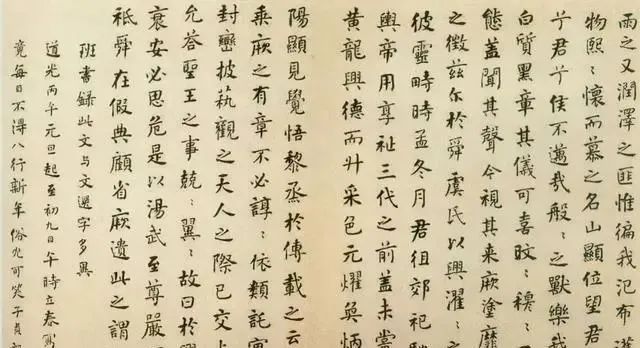 雨之又潤澤之匪惟徧我氾布濩
物熙:懷而慕之名山顯位望君
兮君兮侯不邁哉般:之獸樂我
白質黑章其儀可喜旼:穆:
態蓋聞其聲今視其来厥塗靡
之徵茲尔於舜虞氏以興濯:之
彼靈畤時孟冬月君徂郊祀
輿帝用享祉三代之前蓋未嘗
黄龍興德而升采色元燿奐炳
陽顯見覺悟黎烝於傳載之云
乘厥之有章不必諄:依類託寓
封巒披藝觀之天人之際已交上
允荅聖王之事兢:翼:故曰於
衰安必思危是以湯武至尊嚴
祗舜在假典顧省厥遺此之謂
班書録此文与文選字多異
道光丙午元旦起至初九日午時立春寫
竟每日不得八行新年俗冗可笑子貞